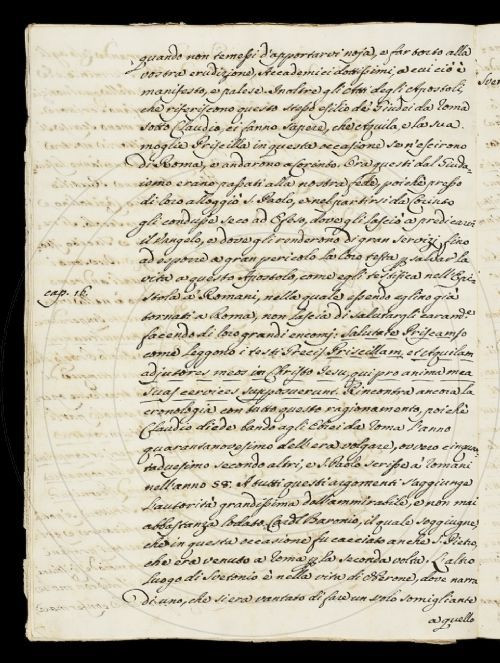 quando non temessi d'apportarvi noja, e far torto alla
vostra erudizione, Accademici dottissimi, a cui ciò è
manifesto, e palese. Inoltre gli Atti degli Apostoli,
che riferiscono questo stesso esilio de' Giudei da Roma
sotto Claudio, ci fanno sapere, che Aquila, e la sua
moglie Priscilla in questa occasione se n'escirono
di Roma, e andarono a Corinto. Ora questi dal Giuda-
ismo erano passati alla nostra fede, poichè presso
di loro alloggiò S. Paolo, e nel partirsi da Corinto
gli condusse seco ad Efeso, dove gli lasciò a predicare
il Vangelo, e dove gli renderono di gran servizj, fino
ad esporre a gran pericolo la loro testa per salvar la
vita a questo Apostolo, come egli testifica nell'Epi-
cap. 16. stola a' Romani, nella quale essendo eglino già
tornati a Roma, non lascia di salutargli
facendo di loro grandi encomj. Salutate Priscam, o
come leggono i testi Greci, Priscillam, et Aquilam
adjutores meos in Christo Jesu, qui pro anima mea
suas cervices supposuerunt. Rincontra ancora la
cronologia con tutto questo ragionamento, poichè
Claudio diede bando agli Ebrei da Roma l'anno
quarantanovesimo dell'era volgare, ovvero cinquan-
taduesimo secondo altri, e S. Paolo scrisse a' Romani
nell'anno 58. A tutti questi argomenti s'aggiunge
l'autorità grandissima dell'ammirabile, e non mai
abbastanza lodato Card. Baronio, il quale soggiugne,
che in questa occasione fu cacciato anche S. Pietro,
che era venuto a Roma per la seconda volta. L'altro
luogo di Svetonio è nella vita di Nerone, dove narra
di uno, che si era vantato di fare un volo somigliante
a quello